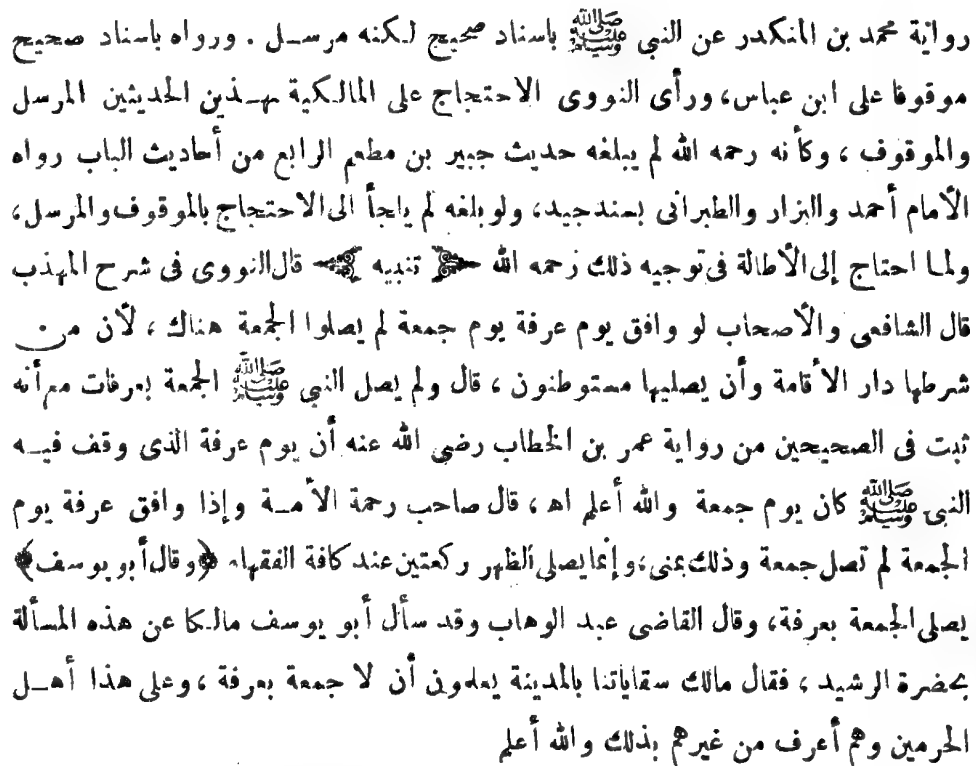 رواية محمد بن المنكدر عن النبي ﷺ باسناد صحيح لكنه مرسل . ورواه باسناد صحيح
موقوفا على ابن عباس، ورأى النووى الاحتجاج على المالكية بهذين الحديثين المرسل
والموقوف ، وكأنه رحمه الله لم يبلغه حديث جبير بن مطعم الرابع من أحاديث الباب رواه
الأمام أحمد والبزار والطبرانى بسند جيد، ولو بلغه لم يلجأ الى الاحتجاج بالموقوف والمرسل،
ولما احتاج إلى الأطالة فى توجيه ذلك رحمه الله ﴿ تنبيه ﴾ قال النووى فى شرح المهذب
قال الشافعى والأصحاب لو وافق يوم عرفة يوم جمعة لم يصلوا الجمعة هناك ، لأن من
شرطها دار الأقامة وأن يصليها مستوطنون ، قال ولم يصل النبي ﷺ الجمعة بعرفات مع أنه
ثبت فى الصحيحين من رواية عمر بن الخطاب رضى الله عنه أن يوم عرفة الذى وقف فيه
النبى ﷺ كان يوم جمعة والله أعلم اه ، قال صاحب رحمة الأمة وإذا وافق عرفة يوم
الجمعة لم تصل جمعة وذلك بمنى، وإنما يصلى الظهر ركعتين عند كافة الفقهاء ﴿وقال أبو يوسف﴾
يصلى الجمعة بعرفة، وقال القاضى عبد الوهاب وقد سأل أبو يوسف مالكا عن هذه المسألة
بحضرة الرشيد ، فقال مالك سقاياتنا بالمدينة يعلمون أن لا جمعة بعرفة ، وعلى هذا أهل
الحرمين وهم أعرف من غيرهم بذلك والله أعلم